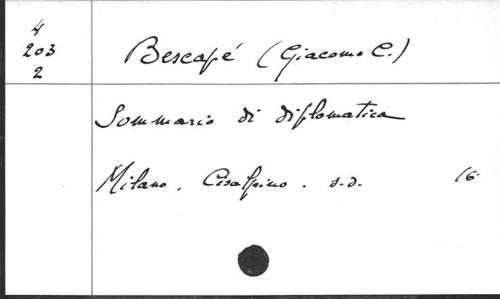 4
203
2
Bescapé (Giacomo C.)
Sommario di diplomatica
Milano, Cisalpino. s.d. 16